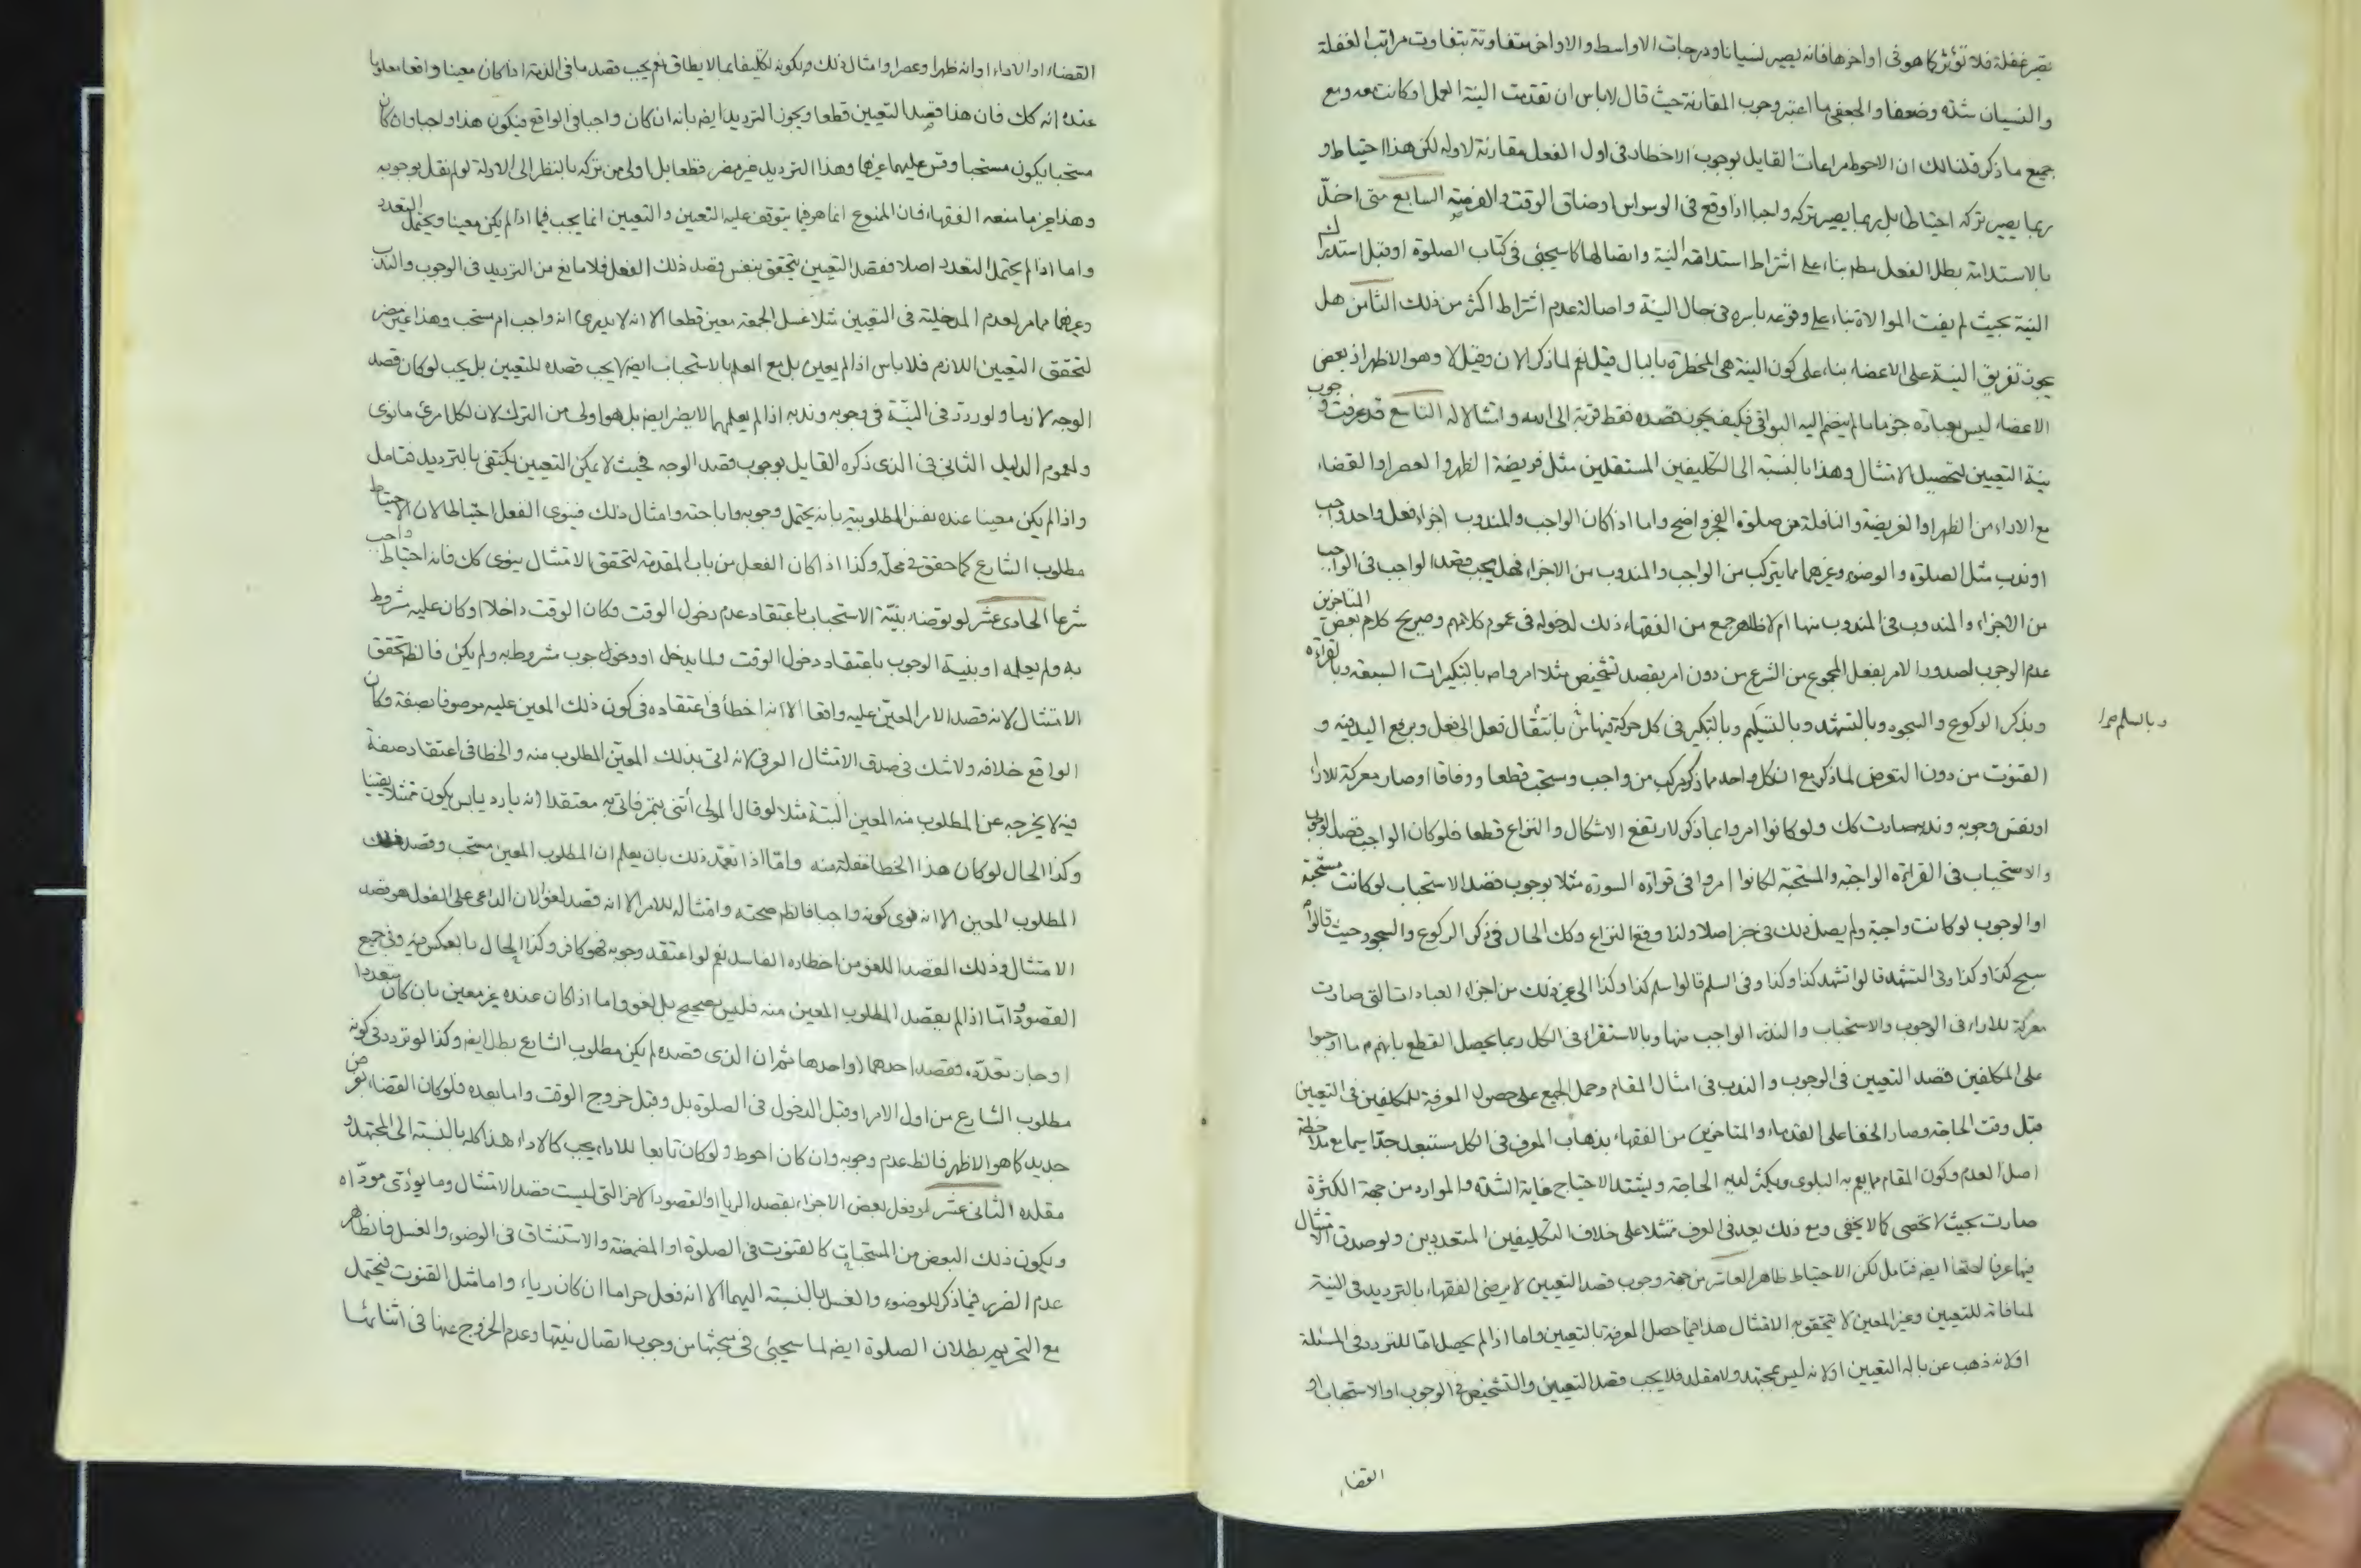 يصير غفلة فلا تؤثر كما هو في اواخرها فانه يصير نسيانا ودرجات الاواسط والاواخر متفاوتة بتفاوت مراتب الغفلة
والنسيان شدة وضعفا والجعفي ما اعتبر وجوب المقارنة حيث قال لا باس ان تقدمت النية العمل او كانت معه ومع
جميع ما ذكر قلنا لك ان الاحوط مراعات القايل بوجوب الاخطار في اول الفعل مقارنة لاوله لكن هذا احتياط و
ربما يصير تركه احتياطا بل ربما يصير تركه واجبا اذا وقع في الوسواس او ضاق الوقت والفرضية السابع متى اخلّ
بالاستدامة بطل الفعل مط بناء على اشتراط استدامة النية واتصالها كما سيجئ في كتاب الصلوة او قبل استدراك
النية بحيث لم يفت الموالاة بناء على وقوعه باسره في حال النية واصالة عدم اشتراط اكثر من ذلك الثامن هل
يجوز تفريق النية على الاعضاء بناء على كون النية هي المخطرة بالبال قيل نعم لما ذكر الان وقيل لا وهو الاظهر اذ بعض
الاعضاء ليس بعبادة جزما ما لم ينضم اليه البواقي فكيف يجوز قصده فقط قربة الى الله وامتثالا له التاسع قد عرفت وجوب
نية التعيين لتحصيل الامتثال وهذا بالنسبة الى التكليفين المستقلين مثل فريضة الظهر والعصر او القضاء
مع الاداء من الظهر او الفريضة والنافلة من صلوة الفجر واضح واما اذا كان الواجب والمندوب اجزاء فعل واحد واجب
او ندب مثل الصلوة والوضوء وغيرهما مما يتركب من الواجب والمندوب من الاجزاء فهل يجب قصد الواجب في الواجب
من الاجزاء والمندوب في المندوب منها ام لا ظاهر جمع من الفقهاء ذلك لدخوله في عموم كلامهم وصريح كلام بعض المتاخرين
عدم الوجوب لصدور الامر بفعل المجموع من الشرع من دون امر بقصد تشخيص مثلا امروا به بالتكبيرات السبعة وبالقراءة
وبذكر الركوع والسجود وبالتشهد وبالتسليم وبالتكبير في كل حركة فيها بانتقال فعل الى فعل وبرفع اليد فيه و
وبالسلم صرا
القنوت من دون التعرض لما ذكر مع ان كل واحد مما ذكر مركب من واجب ومستحب قطعا ووفاقا او صار معركة للاراء
او نفس وجوبه وندبه صارت كك ولو كانوا امروا بما ذكر لارتفع الاشكال والنزاع قطعا فلو كان الواجب قصد الوجوب
والاستحباب في القراءة الواجبة والمستحبة لكانوا امروا في قراءة السورة مثلا بوجوب قصد الاستحباب لو كانت مستحبة
او الوجوب لو كانت واجبة ولم يصل ذلك في خبر اصلا ولذا وقع النزاع وكك الحال في ذكر الركوع والسجود حيث قالوا
سبح كذا وكذا وفي التشهد قالوا تشهد كذا وكذا وفي السلم قالوا سلم كذا وكذا الى غير ذلك من اجزاء العبادات التي صارت
معركة للاراء في الوجوب والاستحباب والنذر الواجب منها وبالاستقراء في الكل ربما يحصل القطع بانهم ما اوجبوا
على المكلفين قصد التعيين في الوجوب والندب في امثال المقام وحمل الجميع على حصول المعرفة للمكلفين في التعيين
قبل وقت الحاجة وصار الخفاء على القدماء والمتاخرين من الفقهاء بذهاب المعرفة في الكل مستبعد جدا سيما مع ملاحظة
اصل العدم وكون المقام مما يعم به البلوى ويكثر لديه الحاجة ويشتد الاحتياج غاية الشدة والموارد من جهة الكثرة
صارت بحيث لا تحصى كما لا يخفى ومع ذلك يعد في العرف ممتثلا على خلاف التكليفين المتعددين ولو صدق الامتثال
فيها عرفا لصحتا ايضا فتامل لكن الاحتياط ظاهر العاشر من جهة وجوب قصد التعيين لا يرضى الفقهاء بالترديد في النية
لمنافاته للتعيين وغير المعين لا يتحقق به الامتثال هذا فيما حصل المعرفة بالتعيين واما اذا لم يحصل اما للتردد في المسئلة
او لانه ذهب عن باله التعيين او لانه ليس بمجتهد ولا مقلد فلا يجب قصد التعيين والتشخيص في الوجوب او الاستحباب او
القضاء
القضاء او الاداء او انه ظهر او عصر او امثال ذلك ويكونه تكليفا بما لا يطاق نعم يجب قصد ما في الذمة اذا كان معينا واقعا معلوما
عنده انه كك فان هذا قصد التعيين قطعا ويجوز الترديد ايضا بانه ان كان واجبا في الواقع فيكون هذا واجبا وان كان
مستحبا يكون مستحبا وقس عليهما غيرها وهذا الترديد غير مضر قطعا بل اولى من تركه بالنظر الى الادلة لو لم نقل بوجوبه
وهذا غير ما منعه الفقهاء فان الممنوع انما هو فيما يتوقف عليه التعيين والتعيين انما يجب فيما اذا لم يكن معينا ويحتمل التعدد
واما اذا لم يحتمل التعدد اصلا فقصد التعيين يتحقق بنفس قصد ذلك الفعل فلا مانع من الترديد في الوجوب والندب
وغيرهما مما مر لعدم المدخلية في التعيين مثلا غسل الجمعة معين قطعا الا انه لا يدري انه واجب ام مستحب وهذا غير مضر
لتحقق التعيين اللازم فلا باس اذا لم يعين بل مع العلم بالاستحباب ايضا لا يجب قصده للتعيين بل يجب لو كان قصد
الوجه لازما ولو ردد في النية في وجوبه وندبه اذا لم يعلمهما لا يضر ايضا بل هو اولى من الترك لان لكل امرئ ما نوى
ولعموم الدليل الثاني في الذي ذكره القايل بوجوب قصد الوجه فحيث لا يمكن التعيين يكتفى بالترديد فتامل
واذا لم يكن معينا عنده نفس المطلوبية بانه يحتمل وجوبه واباحته وامثال ذلك فينوى الفعل احتياطا لان الاحتياط
مطلوب الشارع كما حقق في محله وكذا اذا كان الفعل من باب المقدمة لتحقق الامتثال ينوى كك فانه احتياط واجب
شرعا الحادي عشر لو توضاء بنية الاستحباب باعتقاد عدم دخول الوقت وكان الوقت داخلا او كان عليه مشروط
به ولم يعلمه او بنية الوجوب باعتقاد دخول الوقت ولما يدخل او دخول وجوب مشروط به ولم يكن فالظ تحقق
الامتثال لانه قصد الامر المعين عليه واقعا الا انه اخطأ في اعتقاده في كون ذلك المعين عليه موصوفا بصفة وكان
الواقع خلافه ولا شك في صدق الامتثال العرفي لانه اتى بذلك المعين المطلوب منه والخطا في اعتقاد صفة
فيه لا يخرجه عن المطلوب منه المعين البتة مثلا لو قال المولى أتني بتمر فاتى به معتقدا انه بارد يابس يكون ممتثلا يقينا
وكذا الحال لو كان هذا الخطا غفلة منه واما اذا تعمد ذلك بان يعلم ان المطلوب المعين مستحب وقصد
المطلوب المعين الا انه نوى كونه واجبا فالظ صحته وامتثاله للامر الا انه قصد لغو لان الداعي على الفعل هو قصد
الامتثال وذلك القصد اللغو من اخطاره الفاسد نعم لو اعتقد وجوبه فهو كافر وكذا الحال بالعكس فيه وفي جميع
القصود واما اذا لم يقصد المطلوب المعين منه فليس بصحيح بل لغو واما اذا كان عنده غير معين بان كان متعددا
او جاز تعدده فقصد احدهما او احدها ثم ان الذي قصده لم يكن مطلوب الشارع بطل ايضا وكذا لو تردد في كونه
مطلوب الشارع من اول الامر او قبل الدخول في الصلوة بل وقبل خروج الوقت واما بعده فلو كان القضاء بفرض
جديد كما هو الاظهر فالظ عدم وجوبه وان كان احوط ولو كان تابعا للاداء يجب كالاداء هذا كله بالنسبة الى المجتهد و
مقلده الثاني عشر لو فعل بعض الاجزاء بقصد الريا او القصود الاخر التي ليست قصد الامتثال وما يؤدى مودّاه
ويكون ذلك البعض من المستحبات كالقنوت في الصلوة او المضمضة والاستنشاق في الوضوء والغسل فالظاهر
عدم الضرر فيما ذكر للوضوء والغسل بالنسبة اليهما الا انه فعل حراما ان كان رياء واما مثل القنوت فيحتمل
مع التحريم بطلان الصلوة ايضا لما سيجئ في مبحثها من وجوب اتصال نيتها وعدم الخروج عنها في اثنائها